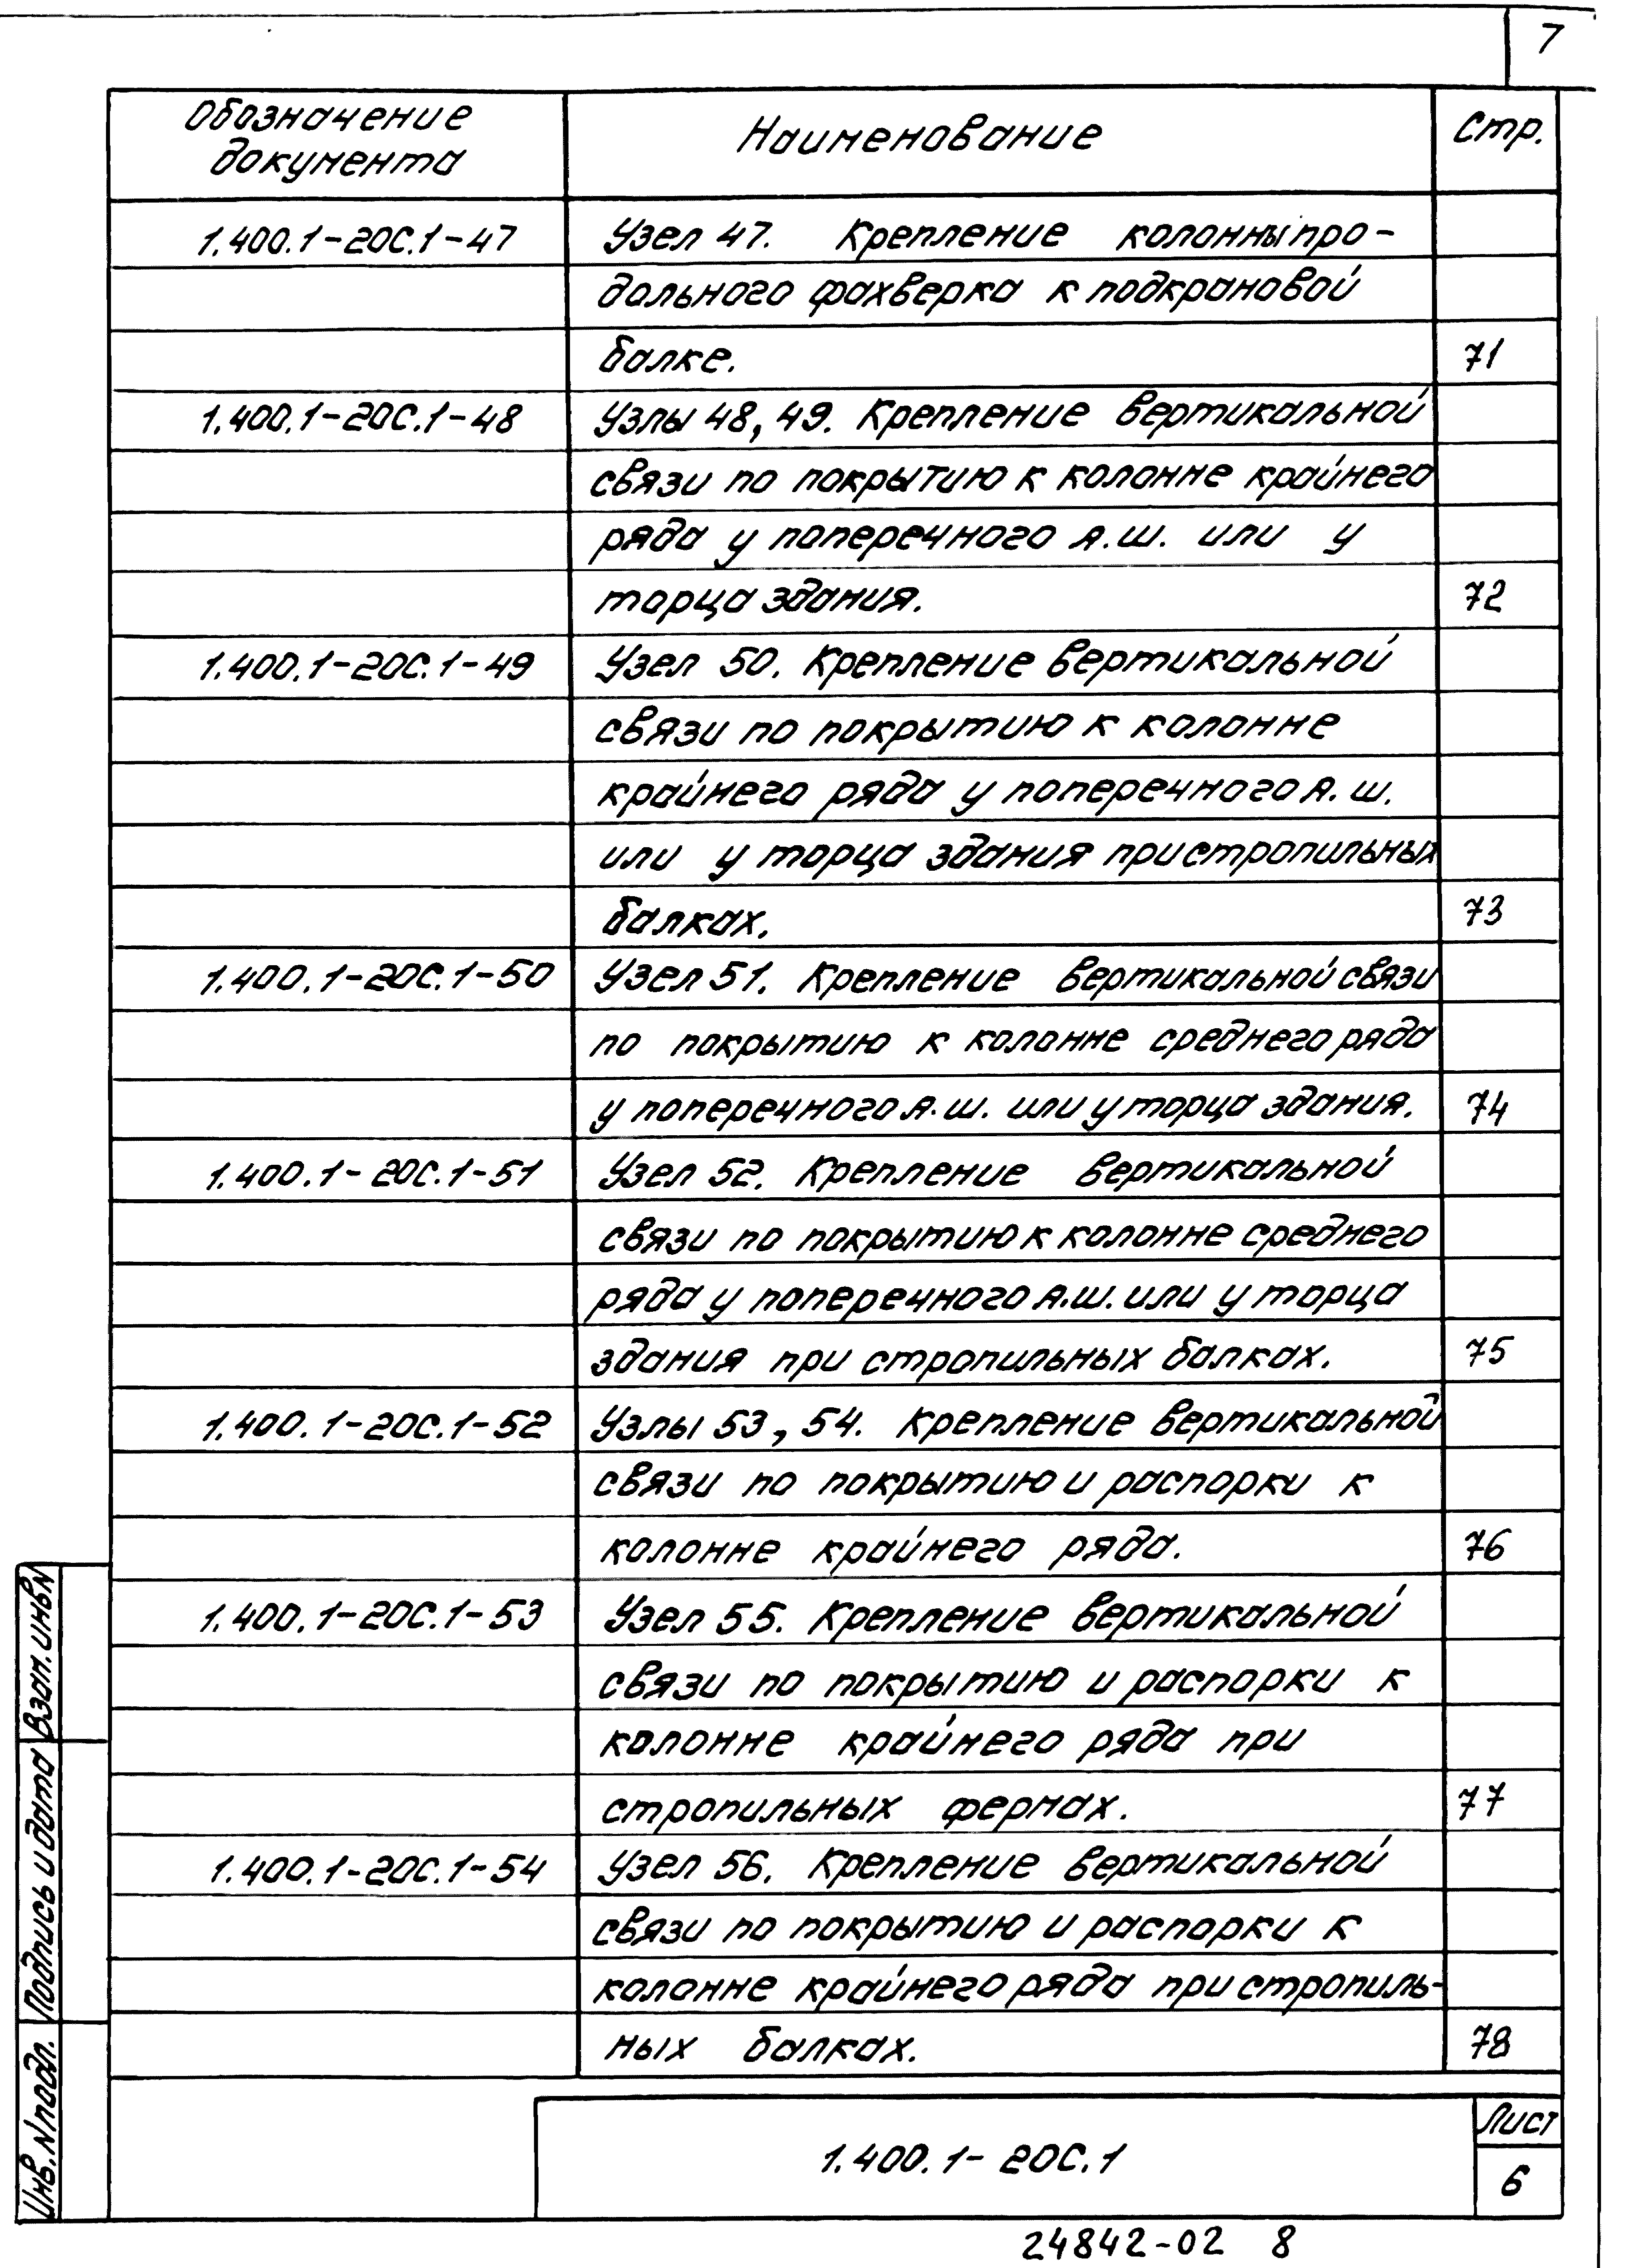 7
Обозначение документа Наименование Стр.
1.400.1-20С.1-47 Узел 47. Крепление колонны про-
дольного фахверка к подкрановой
балке. 71
1.400.1-20С.1-48 Узлы 48, 49. Крепление вертикальной
связи по покрытию к колонне крайнего
ряда у поперечного я.ш. или у
торца здания. 72
1.400.1-20С.1-49 Узел 50. Крепление вертикальной
связи по покрытию к колонне
крайнего ряда у поперечного я.ш.
или у торца здания при стропильных
балках. 73
1.400.1-20С.1-50 Узел 51. Крепление вертикальной связи
по покрытию к колонне среднего ряда
у поперечного я.ш. или у торца здания. 74
1.400.1-20С.1-51 Узел 52. Крепление вертикальной
связи по покрытию к колонне среднего
ряда у поперечного я.ш. или у торца
здания при стропильных балках. 75
1.400.1-20С.1-52 Узлы 53, 54. Крепление вертикальной
связи по покрытию и распорки к
колонне крайнего ряда. 76
1.400.1-20С.1-53 Узел 55. Крепление вертикальной
связи по покрытию и распорки к
колонне крайнего ряда при
стропильных фермах. 77
1.400.1-20С.1-54 Узел 56. Крепление вертикальной
связи по покрытию и распорки к
колонне крайнего ряда при стропиль-
ных балках. 78
Взап. инв N
Подпись и дата
Инв. N подл.
1.400.1-20С.1
Лист
6
24842-02 8